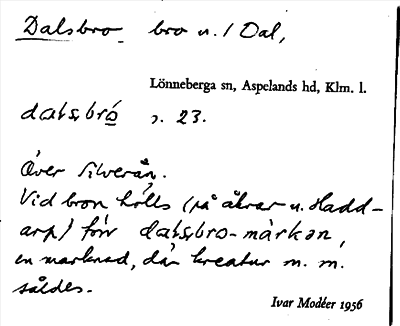 Dalsbro bro u. / Dal,
Lönneberga sn, Aspelands hd, Klm. l.
dat̨sbro̲ ́ s. 23.
Över Silverån.
Vid bron hölls (på åkrar u. Hadd-
arp) förr dat̨sbro-märkan,
en marknad, där kreatur m. m.
såldes.
Ivar Modéer 1956